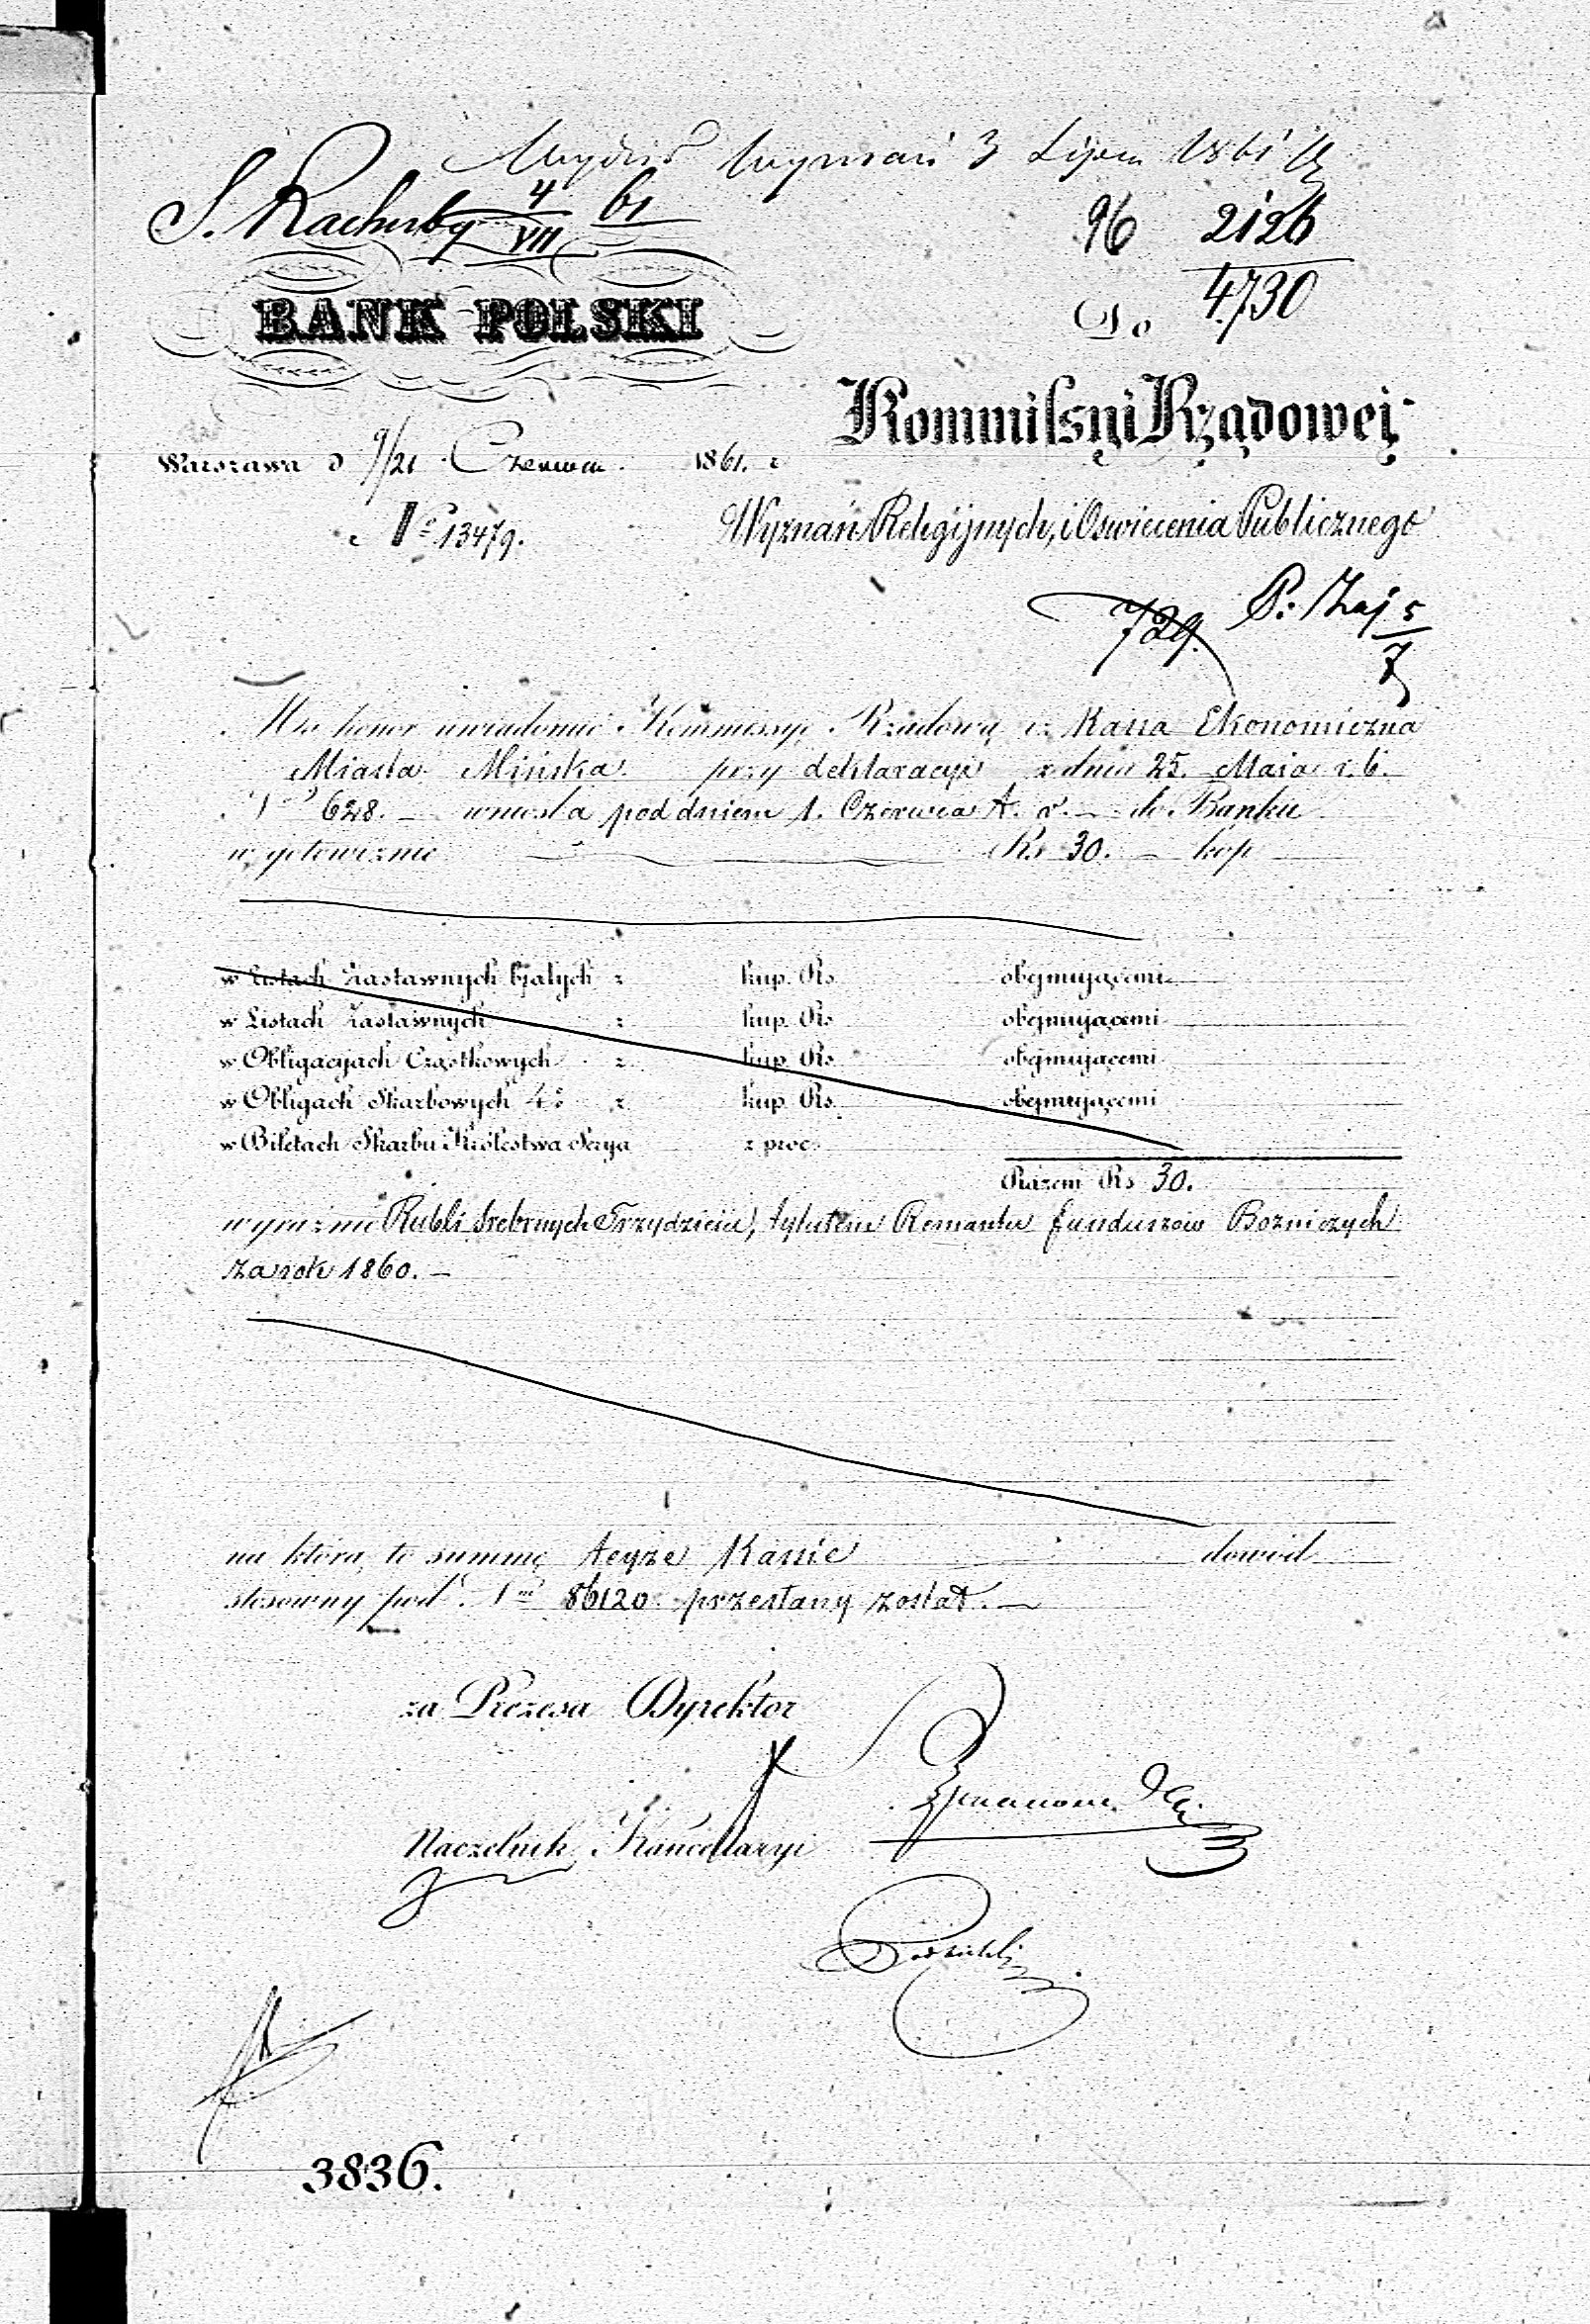 Wydział Wyznań 3 Lipca 1861
S. Rachuby 4/VII 61
96 2126
4730
BANK POLSKI
Do
Kommissyi Rządowej
Warszawa d 9/21 Czerwca 1861. r
Wyznań Religijnych, i Oswiecenia Publicznego
No 13479.
P: Zaj 5/7
729.
Ma honor uwiadomić Kommissyę Rządową iż Kassa Ekonomiczna
Miasta Mińska przy deklaracyi z dnia 25. Maja r. b.
No 628. – wniosła pod dniem 1. Czerwca t. r. – do Banku
w gotowiznie Rs 30. – kop
w Listach Zastawnych białych z kup. Rs obejmującemi
w Listach Zastawnych z kup. Rs obejmującemi
w Obligacyach Cząstkowych z kup. Rs obejmującemi
w Obligach Skarbowych 4% z kup. Rs. obejmującemi
w Biletach Skarbu Królestwa Serya z proc.
Razem Rs 30.
wyraźnie Rubli srebrnych Trzydzieści, tytułem Remanentu funduszów Bozniczych
za rok 1860. –
na którą to summę teyże Kassie dowód
stosowny pod No 86120 przesłany został. –
za Prezesa Dyrektor
Naczelnik Kancellaryi
3836.